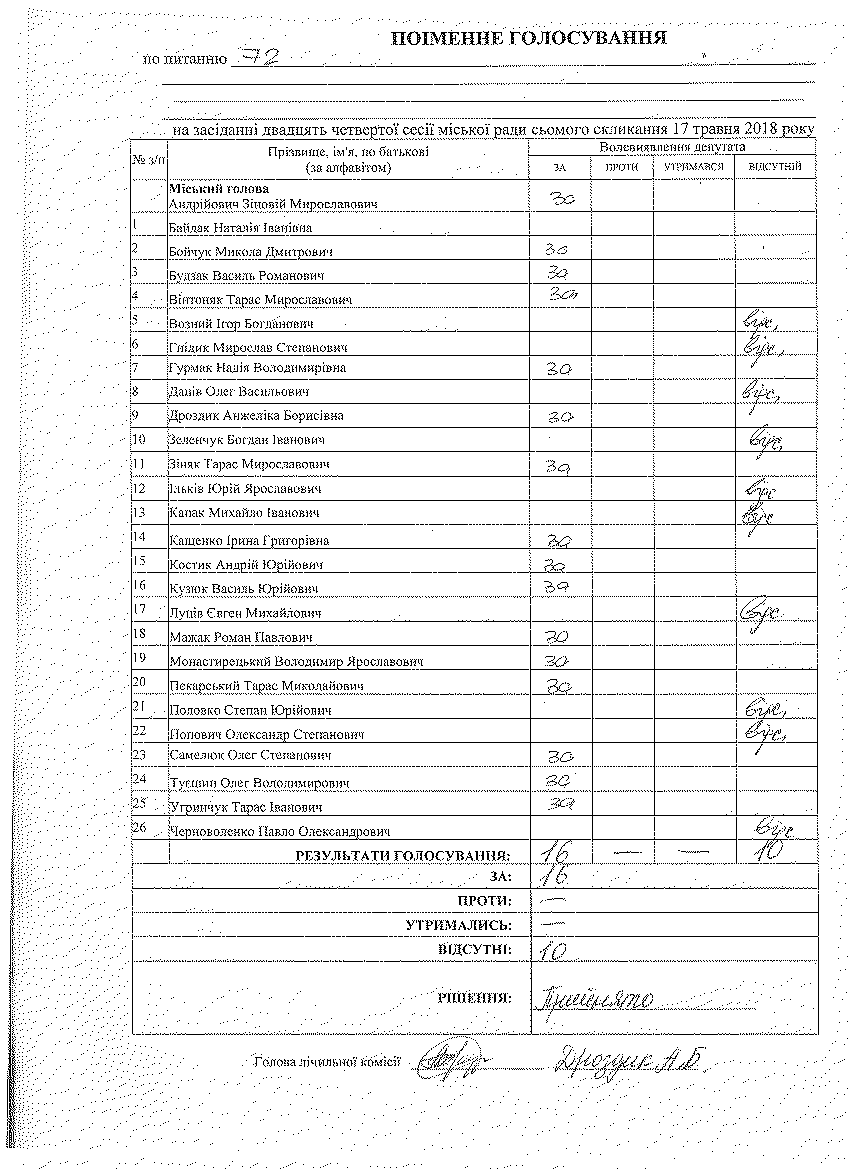 ПОІМЕННЕ ГОЛОСУВАННЯ
по питанню 72
на засіданні двадцять четвертої сесії міської ради сьомого скликання 17 травня 2018 року
№ з/п Прізвище, ім'я, по батькові (за алфавітом) Волевиявлення депутата
ЗА ПРОТИ УТРИМАВСЯ ВІДСУТНІЙ
Міський голова
Андрійович Зіновій Мирославович за
1 Байдак Наталія Іванівна
2 Бойчук Микола Дмитрович за
3 Будзак Василь Романович за
4 Вінтоняк Тарас Мирославович за
5 Возний Ігор Богданович відс,
6 Гнідик Мирослав Степанович відс,
7 Гурмак Надія Володимирівна за
8 Данів Олег Васильович відс,
9 Дроздик Анжеліка Борисівна за
10 Зеленчук Богдан Іванович відс,
11 Зіняк Тарас Мирославович за
12 Ільків Юрій Ярославович відс
13 Капак Михайло Іванович відс
14 Кащенко Ірина Григорівна за
15 Костик Андрій Юрійович за
16 Кузюк Василь Юрійович за
17 Луців Євген Михайлович відс
18 Мажак Роман Павлович за
19 Монастирецький Володимир Ярославович за
20 Пекарський Тарас Миколайович за
21 Половко Степан Юрійович відс,
22 Попович Олександр Степанович відс,
23 Самелюк Олег Степанович за
24 Туршин Олег Володимирович за
25 Угринчук Тарас Іванович за
26 Черноволенко Павло Олександрович відс
РЕЗУЛЬТАТИ ГОЛОСУВАННЯ: 16 — — 10
ЗА: 16
ПРОТИ: —
УТРИМАЛИСЬ: —
ВІДСУТНІ: 10
РІШЕННЯ: Прийнято
Голова лічильної комісії Дроздик А.Б.